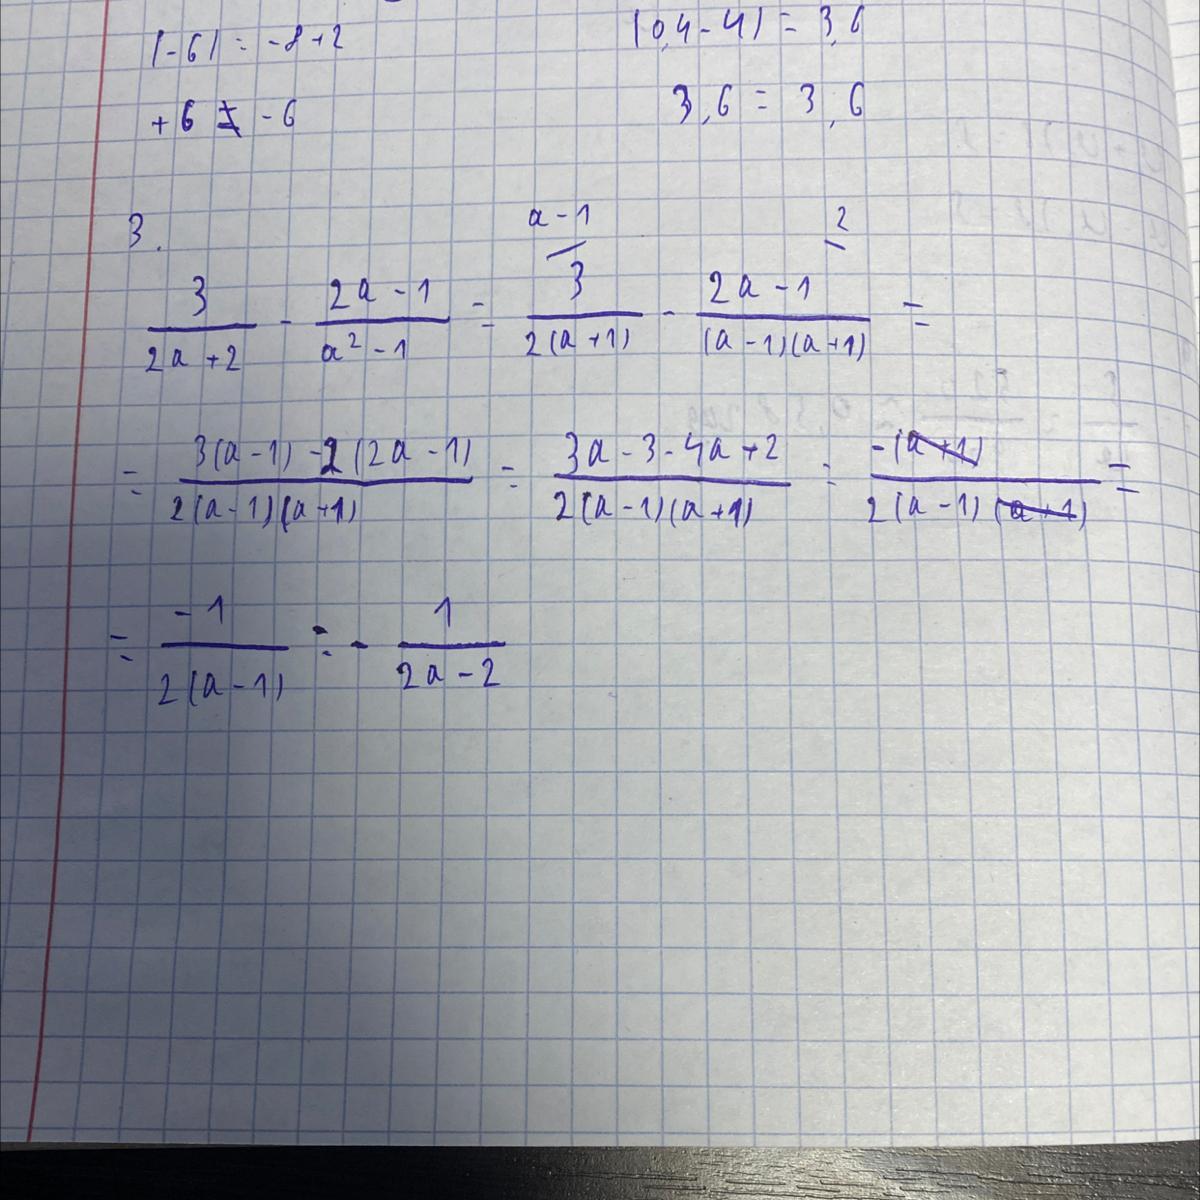 |-6| = -8+2
|0,4-4| = 3,6
+6 ≠ -6
3,6 = 3,6
3.
a-1 2
3/(2a+2) - (2a-1)/(a²-1) = 3/(2(a+1)) - (2a-1)/((a-1)(a+1)) =
= (3(a-1)-2(2a-1))/(2(a-1)(a+1)) = (3a-3-4a+2)/(2(a-1)(a+1)) = (-(a+1))/(2(a-1)(a+1)) =
= (-1)/(2(a-1)) = - 1/(2a-2)